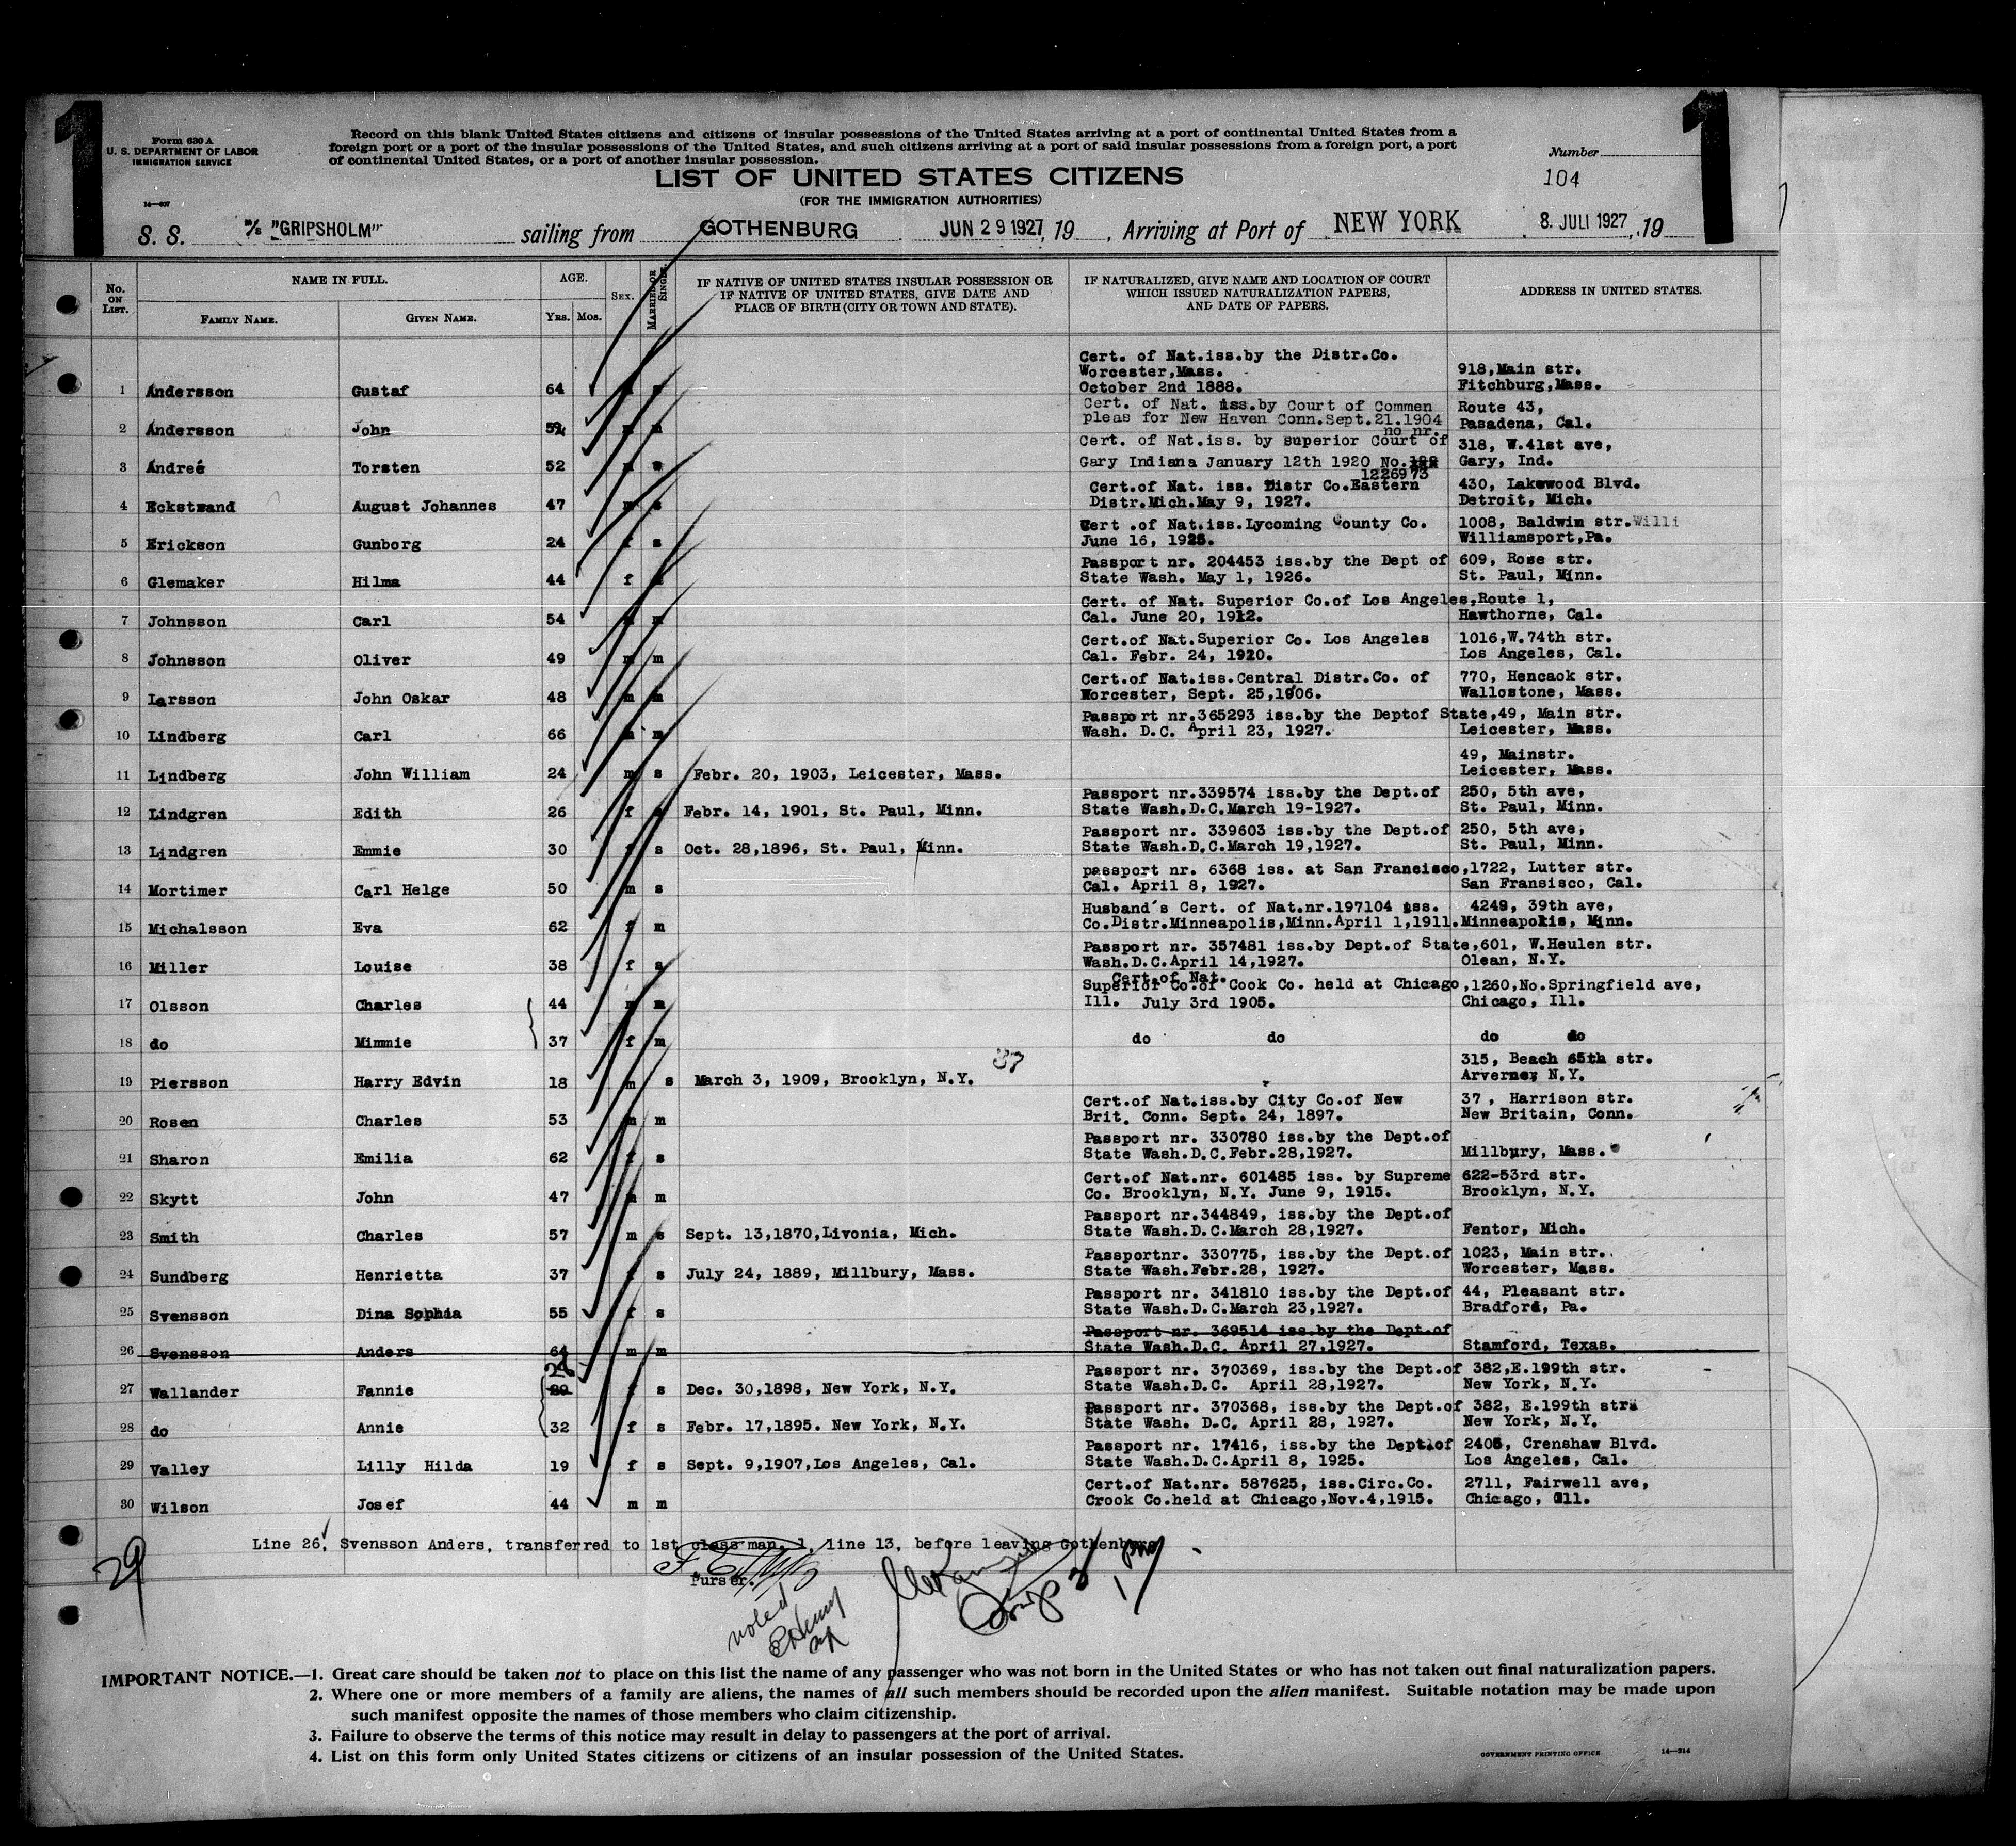 1 1
Form 630 A
U. S. DEPARTMENT OF LABOR
IMMIGRATION SERVICE
Record on this blank United States citizens and citizens of insular possessions of the United States arriving at a port of continental United States from a
foreign port or a port of the insular possessions of the United States, and such citizens arriving at a port of said insular possessions from a foreign port, a port
of continental United States, or a port of another insular possession.
Number
104
LIST OF UNITED STATES CITIZENS
(FOR THE IMMIGRATION AUTHORITIES)
S. S. M/S "GRIPSHOLM" sailing from GOTHENBURG JUN 29 1927, 19 , Arriving at Port of NEW YORK 8. JULI 1927, 19
No. ON LIST. NAME IN FULL. FAMILY NAME. GIVEN NAME. AGE. YRS. MOS. SEX. MARRIED OR SINGLE.
IF NATIVE OF UNITED STATES INSULAR POSSESSION OR
IF NATIVE OF UNITED STATES, GIVE DATE AND
PLACE OF BIRTH (CITY OR TOWN AND STATE).
IF NATURALIZED, GIVE NAME AND LOCATION OF COURT
WHICH ISSUED NATURALIZATION PAPERS,
AND DATE OF PAPERS.
ADDRESS IN UNITED STATES.
Cert. of Nat.iss.by the Distr.Co.
Worcester,Mass. 918,Main str.
1 Andersson Gustaf 64 October 2nd 1888. Fitchburg,Mass.
Cert. of Nat. iss.by Court of Commen Route 43,
2 Andersson John pleas for New Haven Conn.Sept.21.1904 Pasadena, Cal.
no nr.
Cert. of Nat.iss. by superior Court of 318, W.41st ave,
3 Andreé Torsten 52 Gary Indiana January 12th 1920 No. Gary, Ind.
1226973
Cert.of Nat. iss. Distr Co.Eastern 430, Lakewood Blvd.
4 Eckstrand August Johannes 47 Distr.Mich.May 9, 1927. Detroit, Mich.
Cert .of Nat.iss.Lycoming County Co. 1008, Baldwin str.Willi
5 Erickson Gunborg 24 s June 16, 1925. Williamsport,Pa.
Passport nr. 204453 iss.by the Dept of 609, Rose str.
6 Glemaker Hilma 44 f State Wash. May 1, 1926. St. Paul, Minn.
Cert. of Nat. Superior Co.of Los Angeles,Route 1,
7 Johnsson Carl 54 m Cal. June 20, 1912. Hawthorne, Cal.
Cert.of Nat.Superior Co. Los Angeles 1016,W.74th str.
8 Johnsson Oliver 49 m m Cal. Febr. 24, 1920. Los Angeles, Cal.
Cert.of Nat.iss.Central Distr.Co. of 770, Hencaok str.
9 Larsson John Oskar 48 m m Worcester, Sept. 25,1906. Wallostone, Mass.
Passport nr.365293 iss.by the Deptof State,49, Main str.
10 Lindberg Carl 66 m m Wash. D.C. April 23, 1927. Leicester, Mass.
49, Mainstr.
11 Lindberg John William 24 m s Febr. 20, 1903, Leicester, Mass. Leicester, Mass.
Passport nr.339574 iss.by the Dept.of 250, 5th ave,
12 Lindgren Edith 26 f s Febr. 14, 1901, St. Paul, Minn. State Wash.D.C.March 19-1927. St. Paul, Minn.
Passport nr. 339603 iss.by the Dept.of 250, 5th ave,
13 Lindgren Emmie 30 f s Oct. 28,1896, St. Paul, Minn. State Wash.D.C.March 19,1927. St. Paul, Minn.
passport nr. 6368 iss. at San Francisco,1722, Lutter str.
14 Mortimer Carl Helge 50 m s Cal. April 8, 1927. San Fransisco, Cal.
Husband's Cert. of Nat.nr.197104 iss. 4249, 39th ave,
15 Michalsson Eva 62 f m Co.Distr.Minneapolis,Minn.April 1,1911.Minneapolis, Minn.
Passport nr. 357481 iss.by Dept.of State,601, W.Heulen str.
16 Miller Louise 38 f s Wash.D.C.April 14,1927. Olean, N.Y.
Cert.of Nat.
Superior Co.of Cook Co. held at Chicago,1260,No.Springfield ave,
17 Olsson Charles 44 m m Ill. July 3rd 1905. Chicago, Ill.
18 do Mimmie 37 f m do do do do
37 315, Beach 65th str.
19 Piersson Harry Edvin 18 m s March 3, 1909, Brooklyn, N.Y. Arverne, N.Y.
Cert.of Nat.iss.by City Co.of New 37 , Harrison str.
20 Rosen Charles 53 m m Brit. Conn. Sept. 24, 1897. New Britain, Conn.
Passport nr. 330780 iss.by the Dept.of
21 Sharon Emilia 62 f s State Wash.D.C.Febr.28,1927. Millbury, Mass.
Cert.of Nat.nr. 601485 iss. by Supreme 622-53rd str.
22 Skytt John 47 m m Co. Brooklyn, N.Y. June 9, 1915. Brooklyn, N.Y.
Passport nr.344849, iss.by the Dept.of
23 Smith Charles 57 m s Sept. 13,1870,Livonia, Mich. State Wash.D.C.March 28,1927. Fentor, Mich.
Passportnr. 330775, iss.by the Dept.of 1023, Main str.
24 Sundberg Henrietta 37 f s July 24, 1889, Millbury, Mass. State Wash.Febr.28, 1927. Worcester, Mass.
Passport nr. 341810 iss.by the Dept.of 44, Pleasant str.
25 Svensson Dina Sophia 55 f s State Wash.D.C.March 23,1927. Bradford, Pa.
Passport nr. 369514 iss.by the Dept.of
26 Svensson Anders 64 m m State Wash.D.C. April 27,1927. Stamford, Texas.
28 Passport nr. 370369, iss.by the Dept.of 382,E.199th str.
27 Wallander Fannie f s Dec. 30,1898, New York, N.Y. State Wash.D.C. April 28,1927. New York, N.Y.
Passport nr. 370368, iss.by the Dept.of 382, E.199th str.
28 do Annie 32 f s Febr. 17,1895. New York, N.Y. State Wash. D.C. April 28, 1927. New York, N.Y.
Passport nr. 17416, iss.by the Dept.of 2405, Crenshaw Blvd.
29 Valley Lilly Hilda 19 f s Sept. 9,1907,Los Angeles, Cal. State Wash.D.C.April 8, 1925. Los Angeles, Cal.
Cert.of Nat.nr. 587625, iss.Circ.Co. 2711, Fairwell ave,
30 Wilson Josef 44 m m Crook Co.held at Chicago,Nov.4,1915. Chicago, Ill.
Line 26, Svensson Anders, transferred to 1st class man. 1, line 13, before leaving Gothenburg
29
Purser.
noted
IMPORTANT NOTICE.—1. Great care should be taken not to place on this list the name of any passenger who was not born in the United States or who has not taken out final naturalization papers.
2. Where one or more members of a family are aliens, the names of all such members should be recorded upon the alien manifest. Suitable notation may be made upon
such manifest opposite the names of those members who claim citizenship.
3. Failure to observe the terms of this notice may result in delay to passengers at the port of arrival.
4. List on this form only United States citizens or citizens of an insular possession of the United States.
GOVERNMENT PRINTING OFFICE 14—214